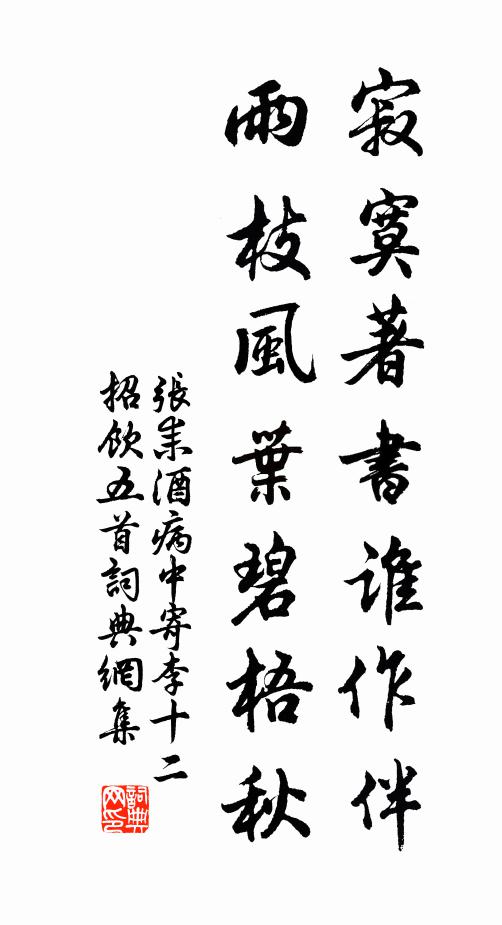 寂寞著書誰作伴
雨枝風葉碧梧秋
張耒酒病中寄李十二
招飲五首詞典網集
詞典
网印